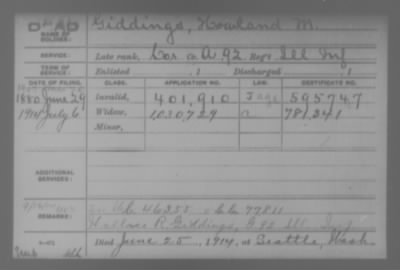 DEAD
NAME OF SOLDIER: Giddings, Howland M.
SERVICE: Late rank, Cor. Co. A 92 Reg't Ill Inf
TERM OF SERVICE: Enlisted , 1 Discharged , 1
DATE OF FILING. CLASS. APPLICATION NO. LAW. CERTIFICATE NO.
1880 June 29 Invalid, 401,910 595747
1914 July 6 Widow, 1,030,729 781,241
Minor,
ADDITIONAL SERVICES:
REMARKS: 46255 77811
Wallace R. Giddings, G 92 Ill Inf
Died June 25, 1914, at Seattle, Wash.